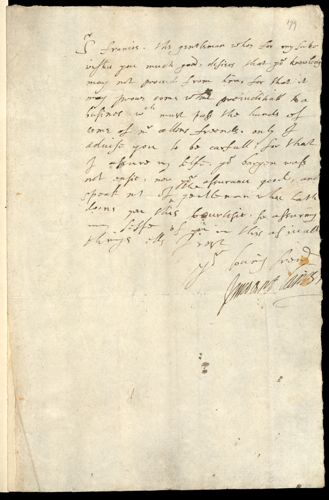 199
Sr Francis. the gentleman who for my sake
wisheth you much good, desires that yr knowledg
may not proceed from him, for that it
may prove some what preiudiciall to a
busines wch must pass the hands of
some of yr actors frends. only I
advise you to be carfull, for that
I assure my selfe yr bargen was
not ease. nor yr assurance good, and
speak not of the gentleman who hath
done you this courtisie. so assuring
my selfe of you in this as in all
things els I rest
yr loving frend